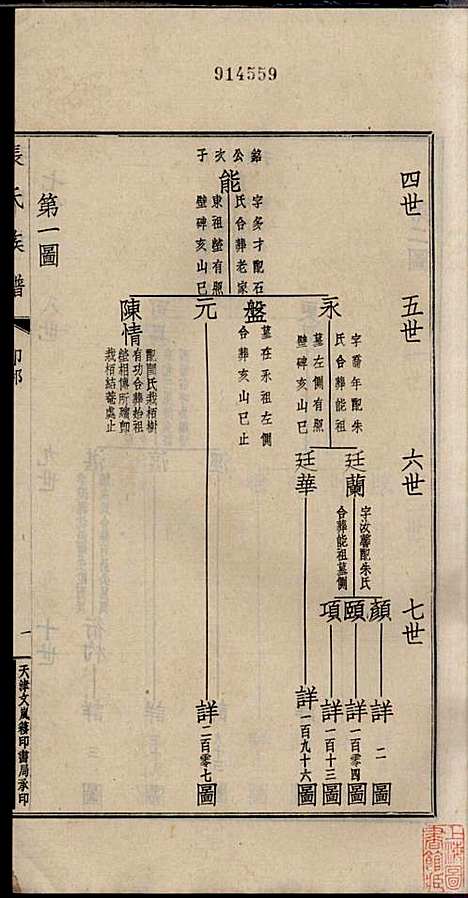 914559
四世
五世
六世
七世
銘公次子
能
字多才配石
氏合葬老家
東祖塋有照
壁碑亥山巳
永
字喬年配朱
氏合葬能祖
墓左側有照
壁碑亥山巳
盤
墓在永祖左側
合葬亥山巳止
元
陳情
配閻氏栽栢樹
有功合葬始祖
塋相傳所殯卽
栽栢結菴處止
廷蘭
字汝馨配朱氏
合葬能祖墓側
廷華
顏
頤
項
詳二圖
詳一百零四圖
詳一百十三圖
詳一百九十六圖
詳二百零七圖
第一圖
長氏族譜
卽部
一
天津文嵐簃印書局承印
上海圖書館藏